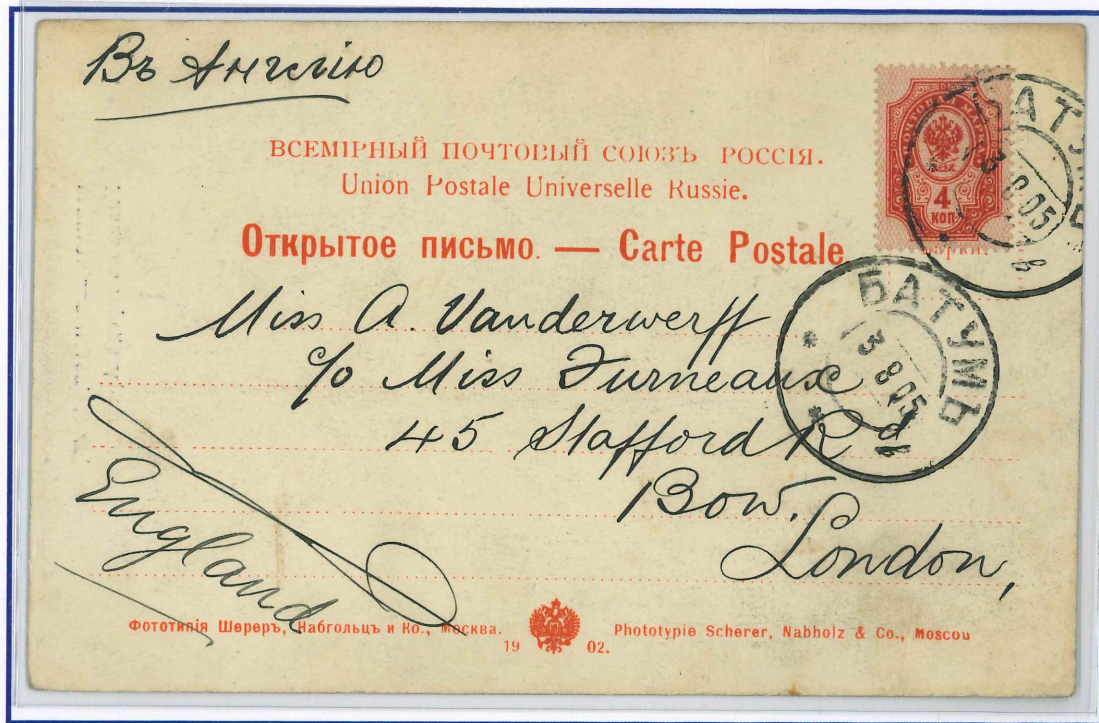 Въ Англію
ВСЕМІРНЫЙ ПОЧТОВЫЙ СОЮЗЪ РОССІЯ.
Union Postale Universelle Russie.
Открытое письмо. — Carte Postale
ПОЧТОВАЯ МАРКА
4
КОП
БАТУМЪ
3 8 05
БАТУМЪ
3 8 05
Miss A. Vanderwerff
c/o Miss Furneaux
45 Stafford Rd
Bow.
London,
England
Фототипія Шереръ, Набгольцъ и Ко., Москва.
1902.
Phototypie Scherer, Nabholz & Co., Moscou